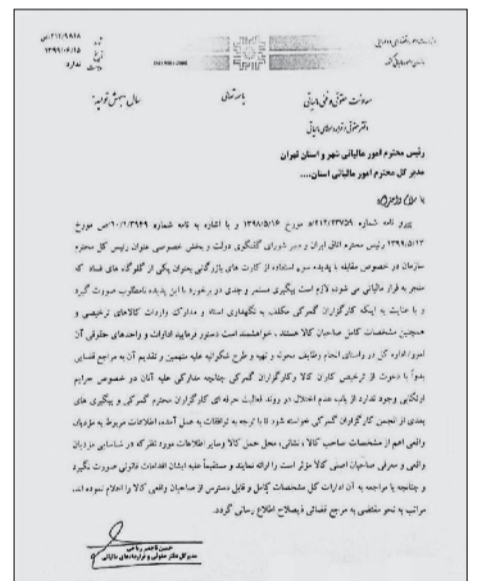 ۲۱۲/۹۸۶۸/ص
۱۳۹۹/۰۶/۱۵
ندارد
سازمان امور مالیاتی کشور
معاونت حقوقی و فنی مالیاتی
باسمه تعالی
سال "جهش تولید"
دفتر حقوقی و قراردادهای مالیاتی
رئیس محترم امور مالیاتی شهر و استان تهران
مدیر کل محترم امور مالیاتی استان....
با سلام و احترام
پیرو نامه شماره ۲۱۲/۲۳۷۵۹/ه مورخ ۱۳۹۸/۵/۱۶ و با اشاره به نامه شماره ۱۰/۲/۳۹۴۹/ص مورخ
۱۳۹۹/۵/۱۳ رئیس محترم اتاق ایران و دبیر شورای گفتگوی دولت و بخش خصوصی عنوان رئیس کل محترم
سازمان در خصوص مقابله با پدیده سوء استفاده از کارت های بازرگانی بعنوان یکی از گلوگاه های فساد که
منجر به فرار مالیاتی می شود، لازم است پیگیری مستمر و جدی در برخورد با این پدیده نامطلوب صورت گیرد
و با عنایت به اینکه کارگزاران گمرکی مکلف به نگهداری اسناد و مدارک واردات کالاهای ترخیصی و
همچنین مشخصات کامل صاحبان کالا هستند، خواهشمند است دستور فرمایید ادارات و واحدهای حقوقی آن
امور/اداره کل در راستای انجام وظایف محوله و تهیه و طرح شکوائیه علیه متهمین و تقدیم آن به مراجع قضایی
بدواً با دعوت از ترخیص کاران کالا وکارگزاران گمرکی چنانچه مدارکی علیه آنان در خصوص جرایم
ارتکابی وجود ندارد از باب عدم اختلال در روند فعالیت حرفه ای کارگزاران محترم گمرکی و پیگیری های
بعدی از انجمن کارگزاران گمرکی خواسته شود تا با توجه به توافقات به عمل آمده، اطلاعات مربوط به مؤدیان
واقعی اعم از مشخصات صاحب کالا ، نشانی، محل حمل کالا وسایر اطلاعات مورد نظر که در شناسایی مؤدیان
واقعی و معرفی صاحبان اصلی کالا مؤثر است را ارائه نمایند و مستقیماً علیه ایشان اقدامات قانونی صورت نگیرد
و چنانچه با مراجعه به آن ادارات کل مشخصات کامل و قابل دسترس از صاحبان واقعی کالا را اعلام نموده اند،
مراتب به نحو مقتضی به مرجع قضائی ذیصلاح اطلاع رسانی گردد.
مدیرکل دفتر حقوقی و قراردادهای مالیاتی